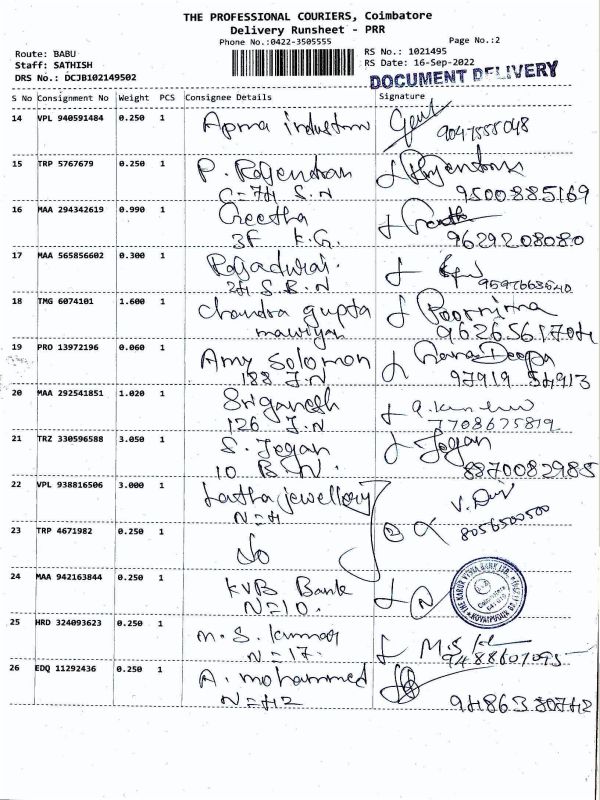 THE PROFESSIONAL COURIERS, Coimbatore
Delivery Runsheet - PRR
Phone No.:0422-3505555 Page No.:2
Route: BABU RS No.: 1021495
Staff: SATHISH RS Date: 16-Sep-2022
DRS No.: DCJB102149502 DOCUMENT DELIVERY
S No Consignment No Weight PCS Consignee Details Signature
14 VPL 940591484 0.250 1
9047558048
15 TRP 5767679 0.250 1 P. Rajendran
C=74 S.N 9500885169
16 MAA 294342619 0.990 1 Geetha
3F K.G. 9629208080
17 MAA 565856602 0.300 1 Rajadurai.
24 S.B.N 9597663640
18 TMG 6074101 1.600 1 Chandra gupta Poornima
9626561704
19 PRO 13972196 0.060 1 Amy Solomon
188 J.N 97919 54913
20 MAA 292541851 1.020 1 Sriganesh
126 J.N 7708675819
21 TRZ 330596588 3.050 1 S. Jegan Jegan
10 B N. 8870082985
22 VPL 938816506 3.000 1 Lastha jewellory
N=4 8056500500
23 TRP 4671982 0.250 1 ②
24 MAA 942163844 0.250 1 KVB Bank
N=10.
25 HRD 324093623 0.250 1 M.S. Kumar M.S
N=17. 9488607095
26 EDQ 11292436 0.250 1 A. mohammed
N=42 9486380742